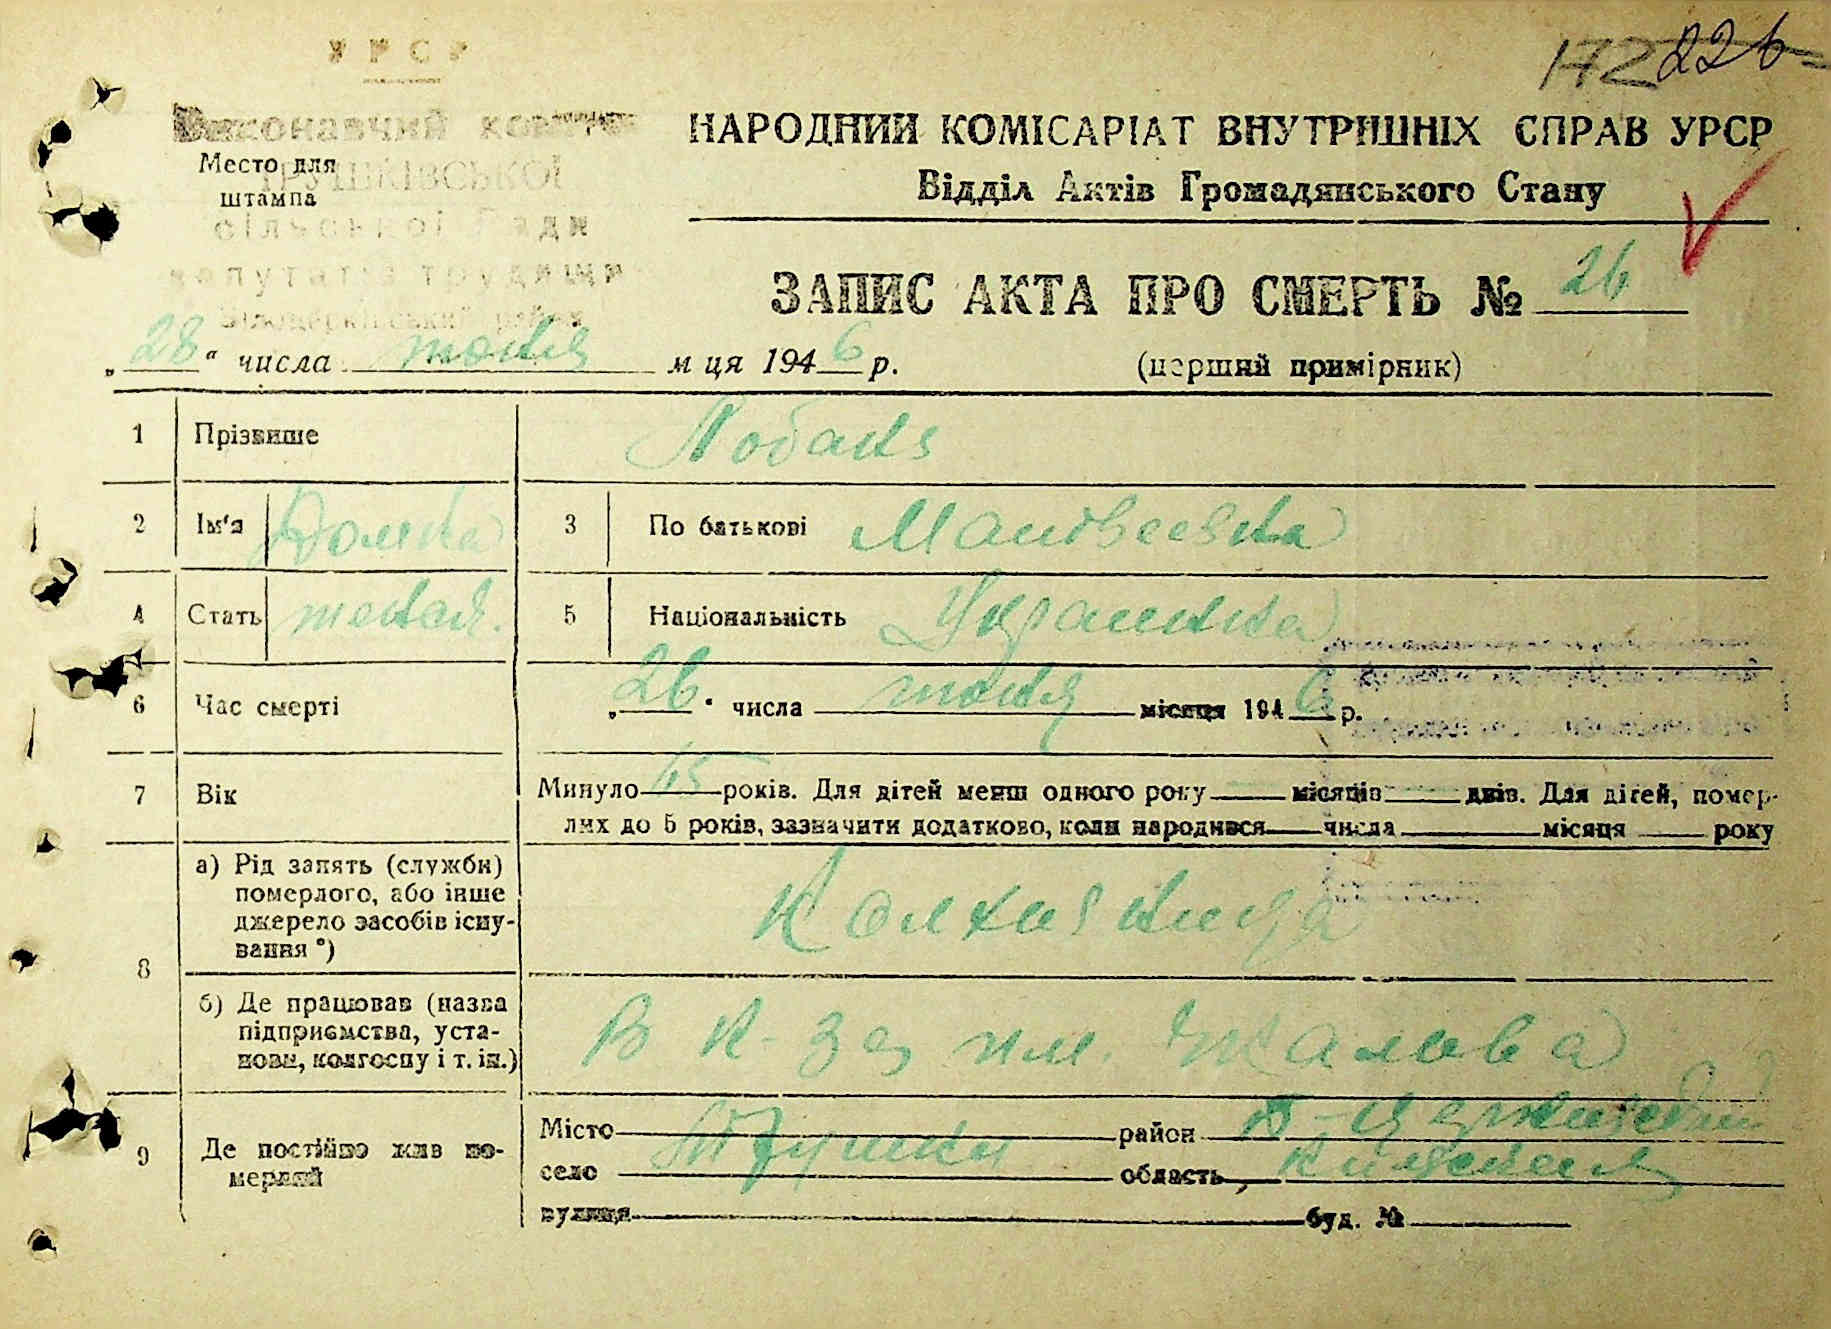 УРСР
172 226
Виконавчий комітет
НАРОДНИЙ КОМІСАРІАТ ВНУТРІШНІХ СПРАВ УРСР
Место для
ТРУШКІВСЬКОЇ
штампа
Відділ Актів Громадянського Стану
сільської Ради
депутатів трудящих
Білоцерківський район
ЗАПИС АКТА ПРО СМЕРТЬ № 26
„28“ числа июня м ця 1946 р.
(перший примірник)
1 Прізвише Лобань
2 Ім'я Домка 3 По батькові Матвеевна
4 Стать женская. 5 Національність Украинка
6 Час смерті „26“ числа июня місяця 1946 р.
7 Вік Минуло 65 років. Для дітей менш одного року місяців днів. Для дітей, помер-
лих до 5 років, зазначити додатково, коли народився числа місяця року
8 а) Рід занять (служби)
померлого, або інше
джерело засобів існу-
вання *) Колхозница
б) Де працював (назва
підприємства, уста-
нови, колгоспу і т. ін.) В к-зе им.
9 Де постійно жив по-
мерлий
Місто район Б-Церковский
село Трушки область Киевская
вулиця буд. №